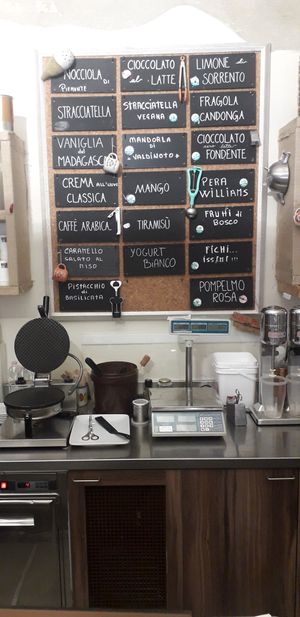 NOCCIOLA
DI
PIEMONTE
CIOCCOLATO
al LATTE
LIMONE
di
SORRENTO
STRACCIATELLA
STRACCIATELLA
VEGANA
FRAGOLA
CANDONGA
VANIGLIA
del
MADAGASCAR
MANDORLA
di
"VALDINOTO"
CIOCCOLATO
FONDENTE
CREMA ALL'UOVO
CLASSICA
MANGO
PERA
WILLIAMS
CAFFÈ ARABICA
TIRAMISÙ
FRUTTI di
BOSCO
CARAMELLO
SALATO AL
MISO
YOGURT
BIANCO
FICHI...
PISTACCHIO
di
BASILICATA
POMPELMO
ROSA